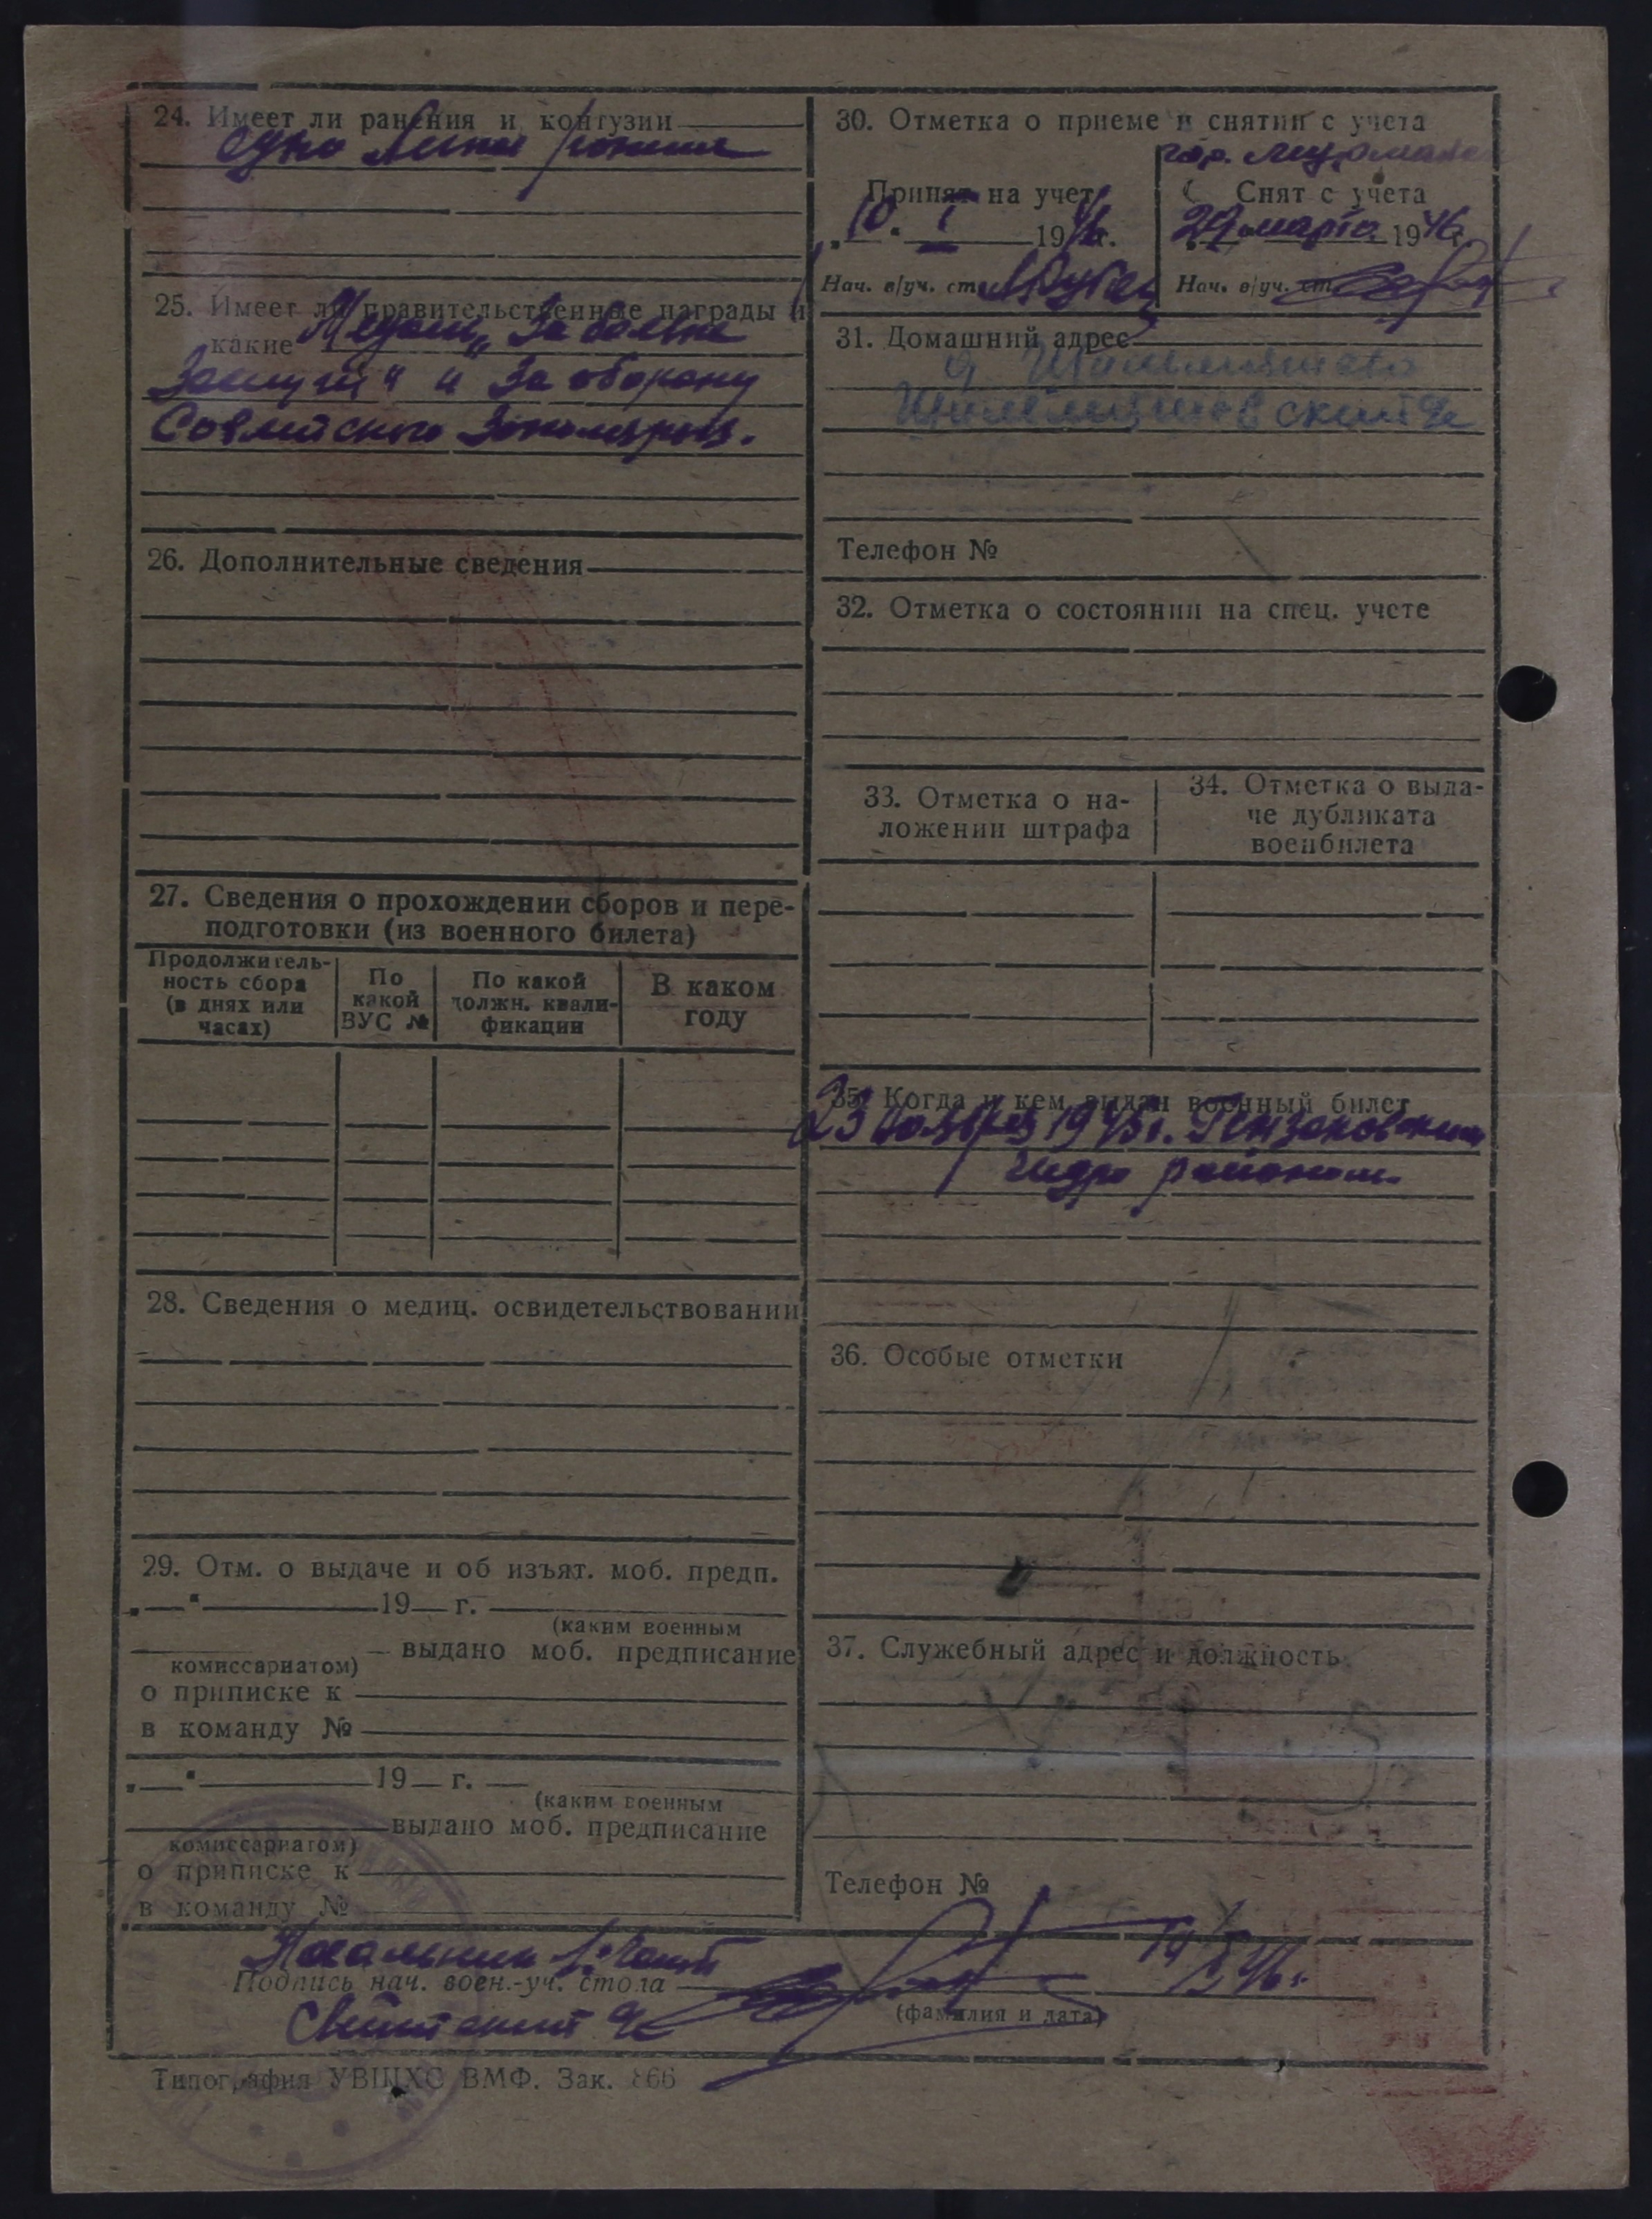 24. Имеет ли ранения и контузии
одно ранение
25. Имеет ли правительственные награды и
какие Медаль „За боевые
Заслуги" и За оборону
Советского Заполярья.
26. Дополнительные сведения
27. Сведения о прохождении сборов и пере-
подготовки (из военного билета)
Продолжитель-
ность сбора
(в днях или
часах)
По
какой
ВУС №
По какой
должн. квали-
фикации
В каком
году
28. Сведения о медиц. освидетельствовании
29. Отм. о выдаче и об изъят. моб. предп.
„ " 19 г.
(каким военным
выдано моб. предписание
комиссариатом)
о приписке к
в команду №
„ " 19 г.
(каким военным
выдано моб. предписание
комиссариатом)
о приписке к
в команду №
30. Отметка о приеме и снятии с учета
гор.
Принят на учет
„10" I 1946г.
Нач. в/уч. ст.
Снят с учета
29 марта 1946г.
Нач. в/уч. ст.
31. Домашний адрес
Телефон №
32. Отметка о состоянии на спец. учете
33. Отметка о на-
ложении штрафа
34. Отметка о выда-
че дубликата
военбилета
35. Когда и кем выдан военный билет
23 ноября 1945г.
гидро районом.
36. Особые отметки
37. Служебный адрес и должность
Телефон №
Начальник 1 части
Подпись нач. воен.-уч. стола
(фамилия и дата)
Типография УВШХС ВМФ. Зак. 866